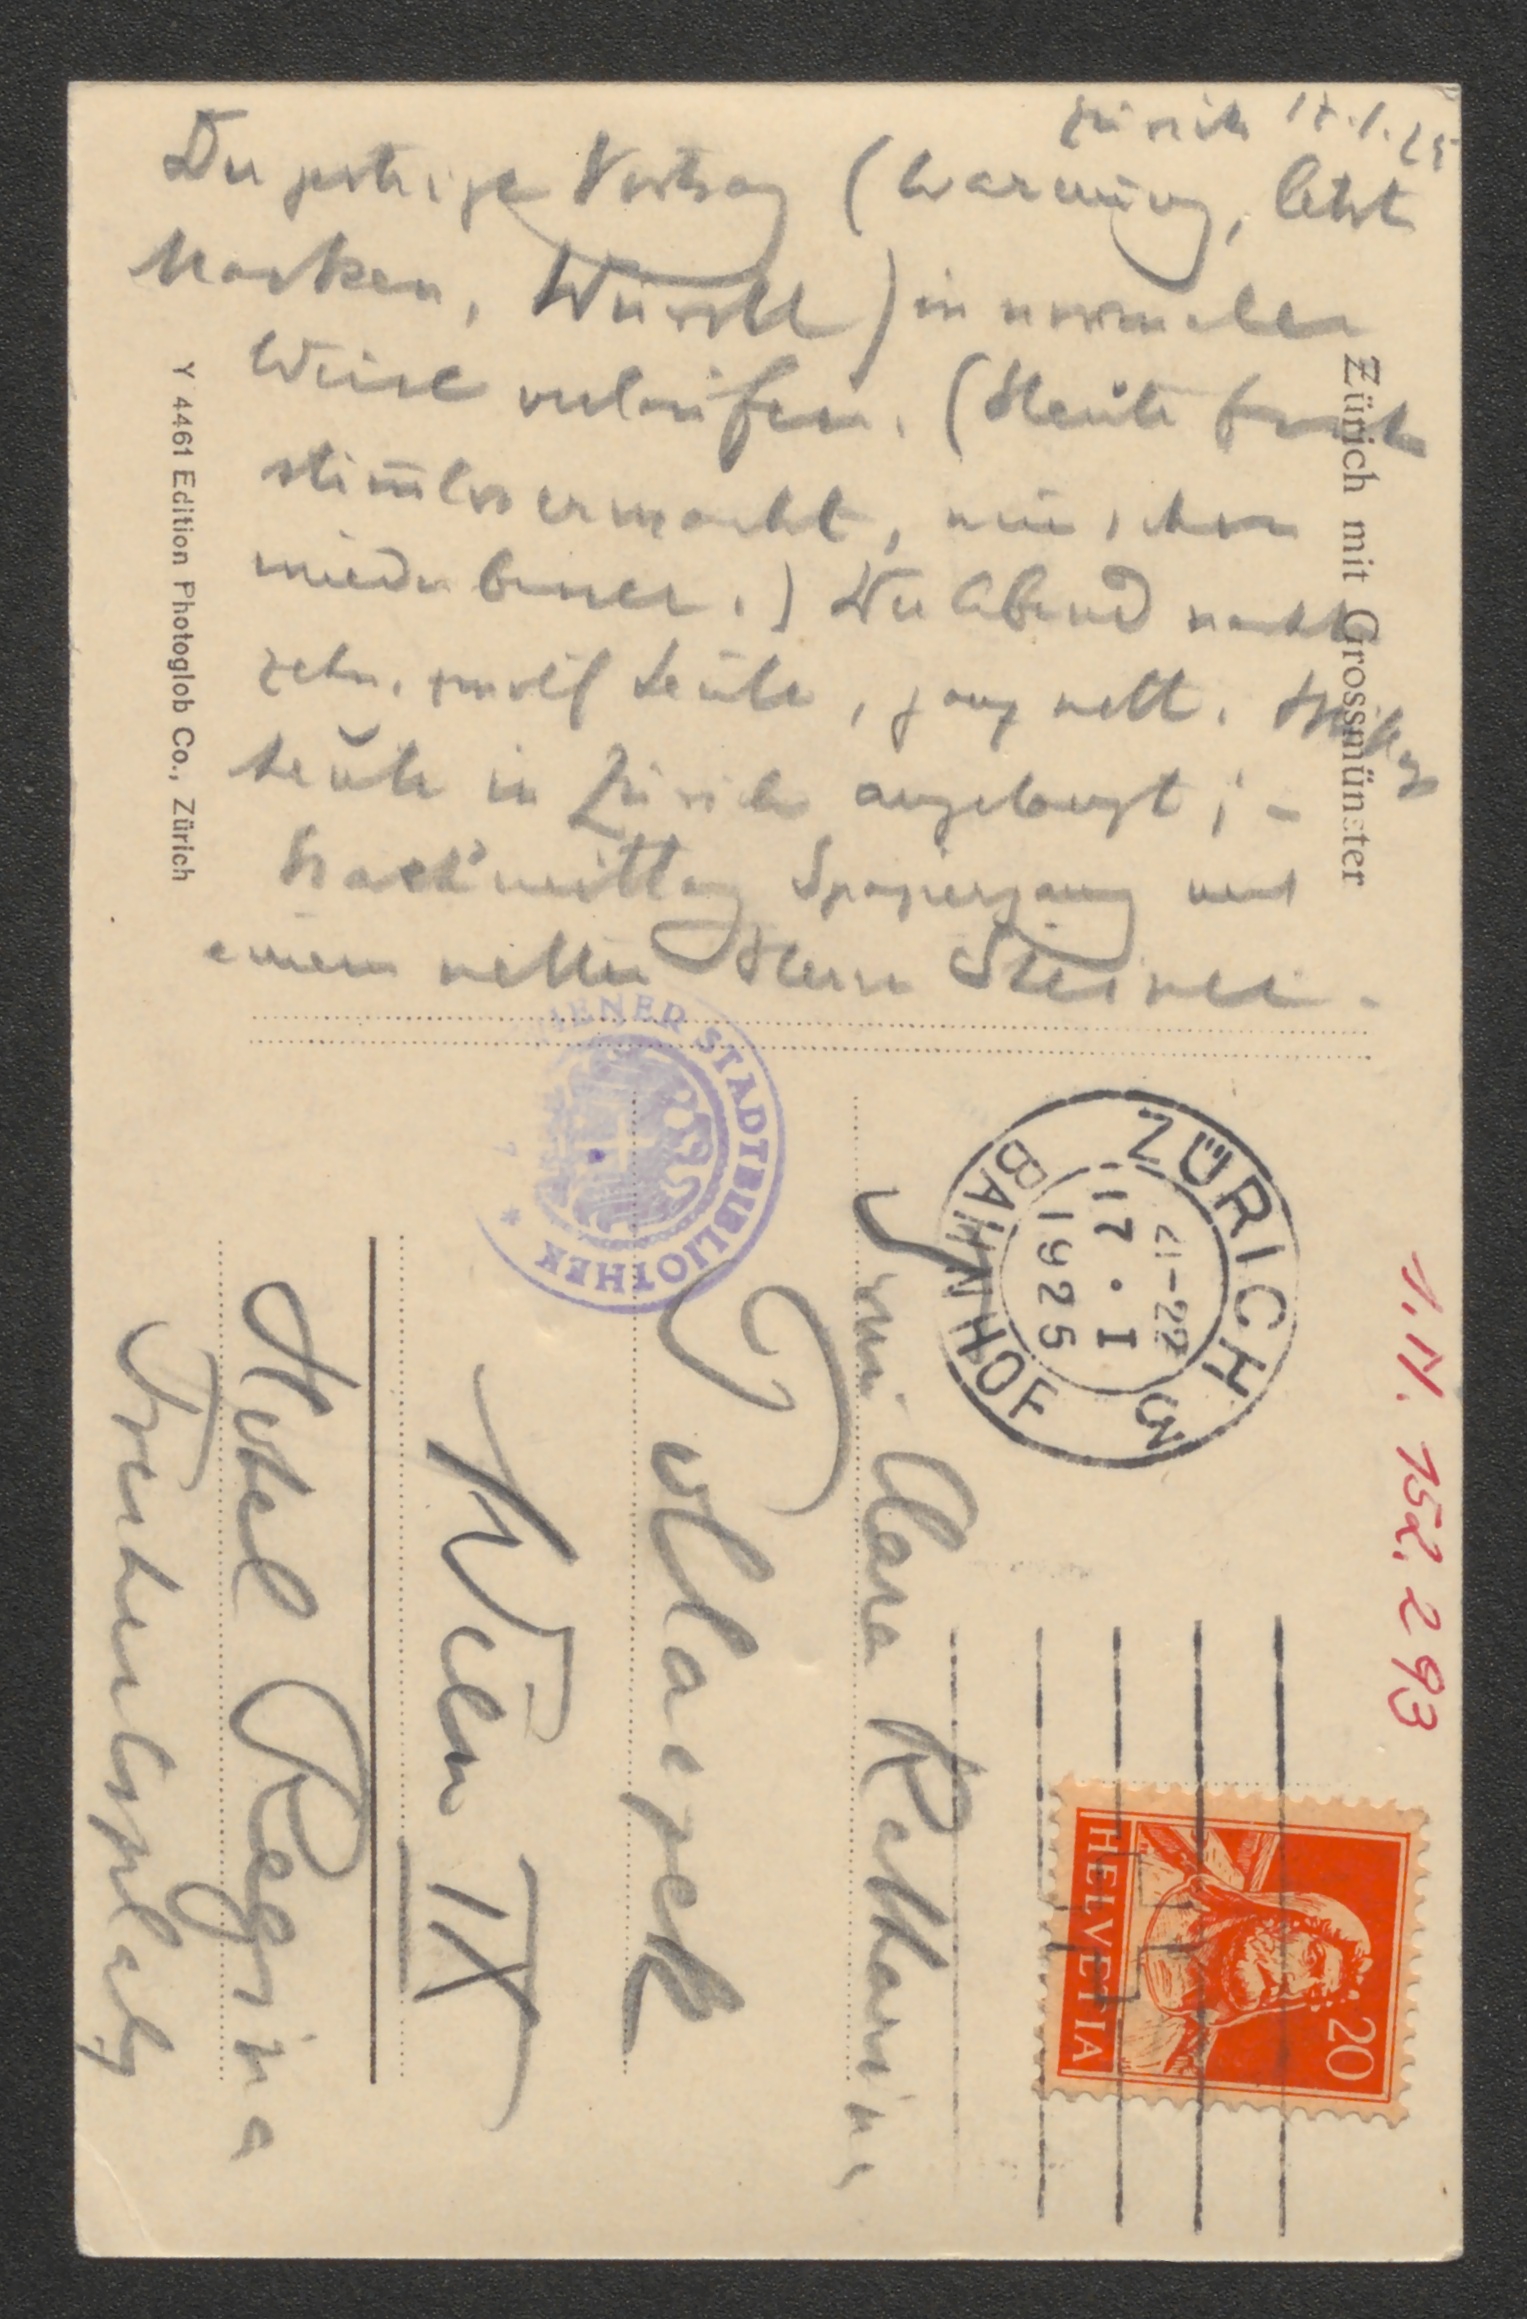 Zürich 17.1.25
Der gestrige Vortrag (Warnung, Letzte
Masken, Würstl) in normaler
Weise verlaufen. (Heute früh
stimlos erwacht, nun schon
wieder besser.) Der Abend nachher
zehn, zwölf Leute, ganz nett.
heute in Zürich angelangt; –
Nachmittag Spaziergang mit
einem netten Herrn Steiner. –
Zürich mit Grossmünster
Y 4461 Edition Photoglob Co., Zürich
WIENER STADTBIBLIOTHEK
ZÜRICH 3
BAHNHOF
17.I
1925
21-22
J.N. 152.293
HELVETIA
20
Clara Katharina
Pollaczek
Wien IX
Hotel Regina